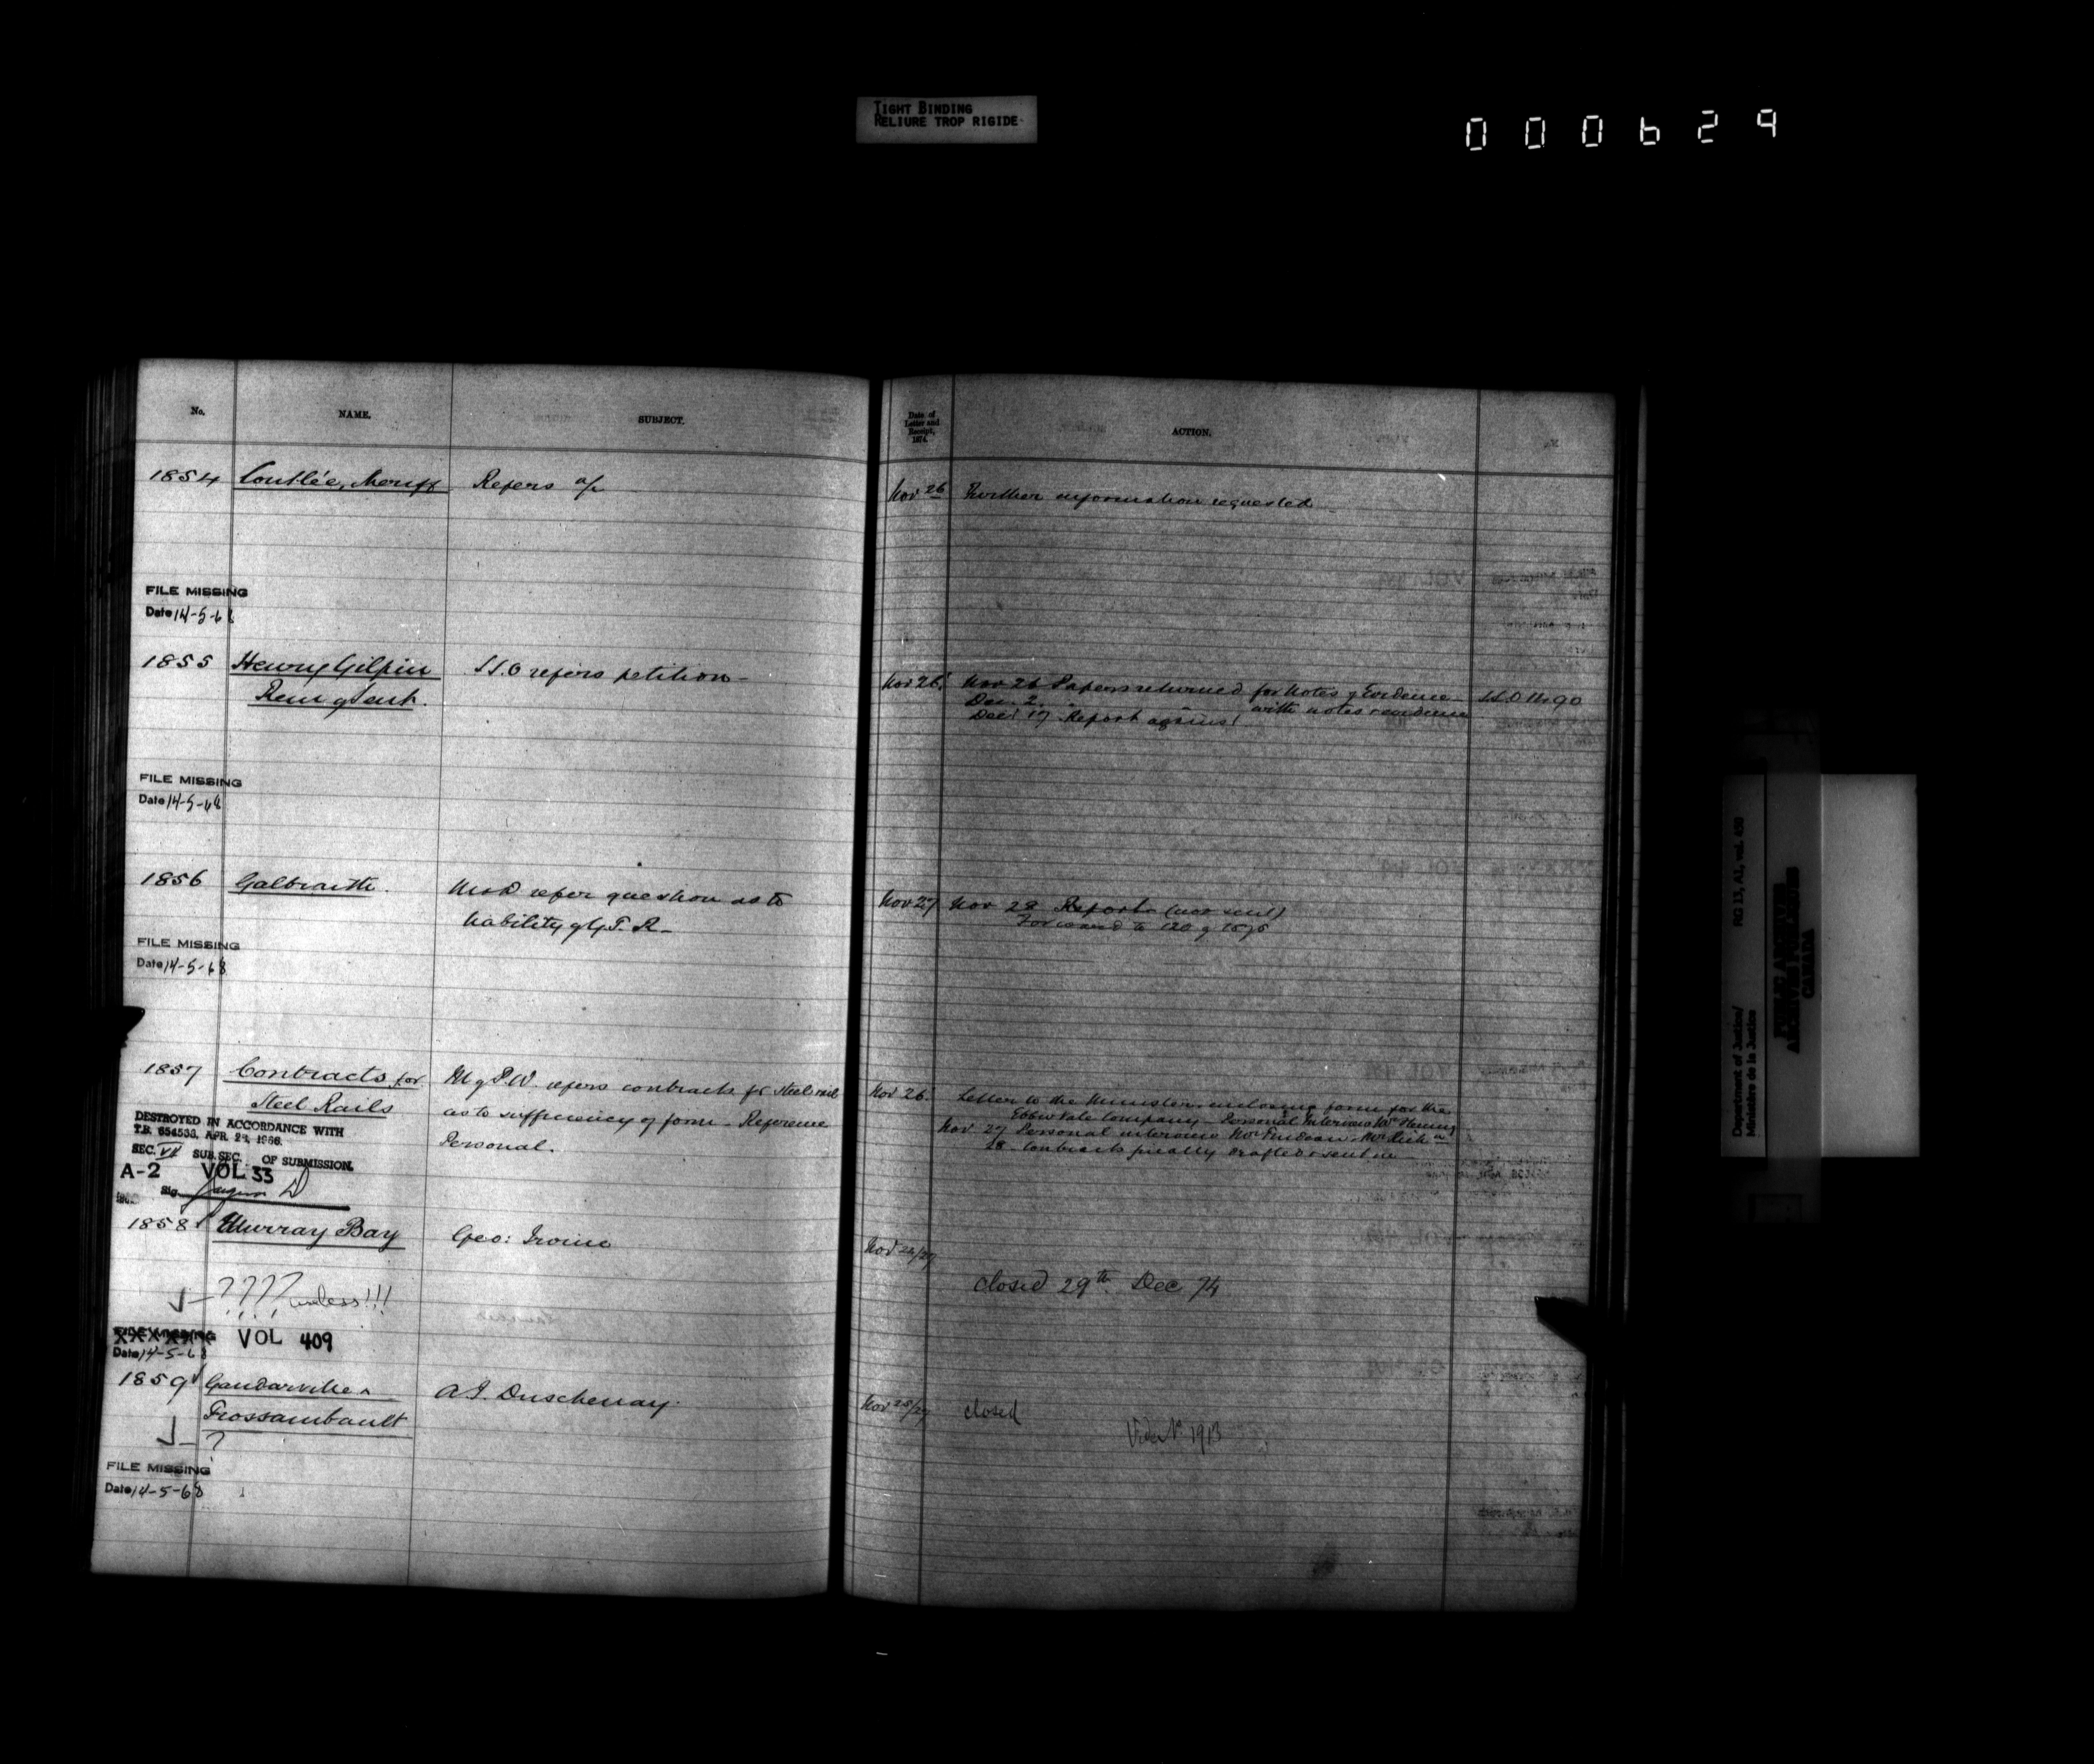 TIGHT BINDING
RELIURE TROP RIGIDE
000629
No.
NAME.
SUBJECT.
Date of
Letter and
Receipt,
1874.
ACTION.
1854 Coutlée, Sheriff Refers a/c Nov 26 Further information requested
FILE MISSING
Date 14-5-68
1855 Henry Gilpin S.S.O refers petition- Nov 26 Nov 26 Papers returned for Notes of Evidence
Rem of Sent. Dec. 2. " with notes evidence
Dec 17 Report against
FILE MISSING
Date 14-5-68
1856 Galbraith. refer question as to Nov 27 Nov 28 Report (not sent)
liability of G.T.R- Forward to 120 of 1875
FILE MISSING
Date 14-5-68
1857 Contracts for M of P.W. refers contracts for Steel rail Nov 26. Letter to the Minister enclosing form for the
Steel Rails as to sufficiency of form - Reference Ebbw Vale Company - Personal Interview Mr Fleming
Personal. Nov 27 Personal interview
28 - Contracts finally drafted & sent in
DESTROYED IN ACCORDANCE WITH
T.B. 654538, APR. 28, 1966.
SEC. VI SUB.SEC. OF SUBMISSION.
A-2 VOL 33
Sig.
1858 Murray Bay Geo: Irvine Nov 26/27
closed 29th Dec 74
???? useless!!!
FILE MISSING VOL 409
Date 14-5-68
1859 Gaudarville & A.J. Duschenay. Nov 25/27 closed
Fossambault Vide No 1913
?
FILE MISSING
Date 14-5-68
Department of Justice/
Ministère de la Justice
RG 13, A1, vol. 430
PUBLIC ARCHIVES
ARCHIVES PUBLIQUES
CANADA